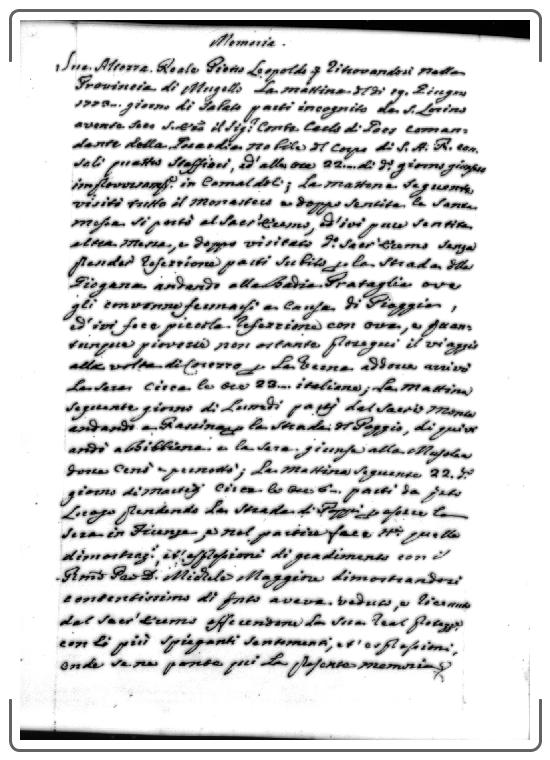 Memoria.
Sua Altezza Reale Pietro Leopoldo p. ritrovandosi nella
Provincia di Mugello La mattina del dì 19. Giugno
1773. giorno di Sabato partì incognito da S.
avente seco il Sig.e Conte Carlo di comandante
dante della nobile del Corpo di S. A. R. con
soli quattro Staffieri, ed' alle ore 22. di d.o giorno giunse
in Camaldoli; La mattina seguente
visitò tutto il Monastero e doppo sentita la Santa
messa si portò al Sacr'Eremo, ed' ivi pure sentita
altra messa, e doppo visitato d.o Sacr'Eremo senza
prender refezione partì subito p. la Strada della
Giogana andando alla Badia Prataglia ove
gli convenne fermarsi a causa di Pioggia,
ed' ivi fece piccola refezione con ova, e quan-
tunque piovesse non ostante proseguì il viaggio
alla volta di p. La Verna addove arrivò
La sera circa le ore 23. italiane; La Mattina
seguente giorno di Lunedì partì dal Sacro Monte
andando a Rassina p. la Strada di Poggio, di quivi
andò a Bibbiena e la sera giunse alla Musolea
dove cenò e pernottò; La mattina seguente 22. d.o
giorno di Martedì circa le ore 6. partì da d.o
Luogo prendendo La Strada di Poppi p. essere la
sera in Firenze, e nel partire fece quelle
dimostraz.i, et' esplessioni di gradimento con il
P.re D. Michele Maggiore dimostrandosi
contentissimo di aveva veduto, e ricevuto
dal Sacr'Eremo La Sua Real
con li più spieganti sentimenti, et' esplessioni,
onde se ne pone qui La presente memoria